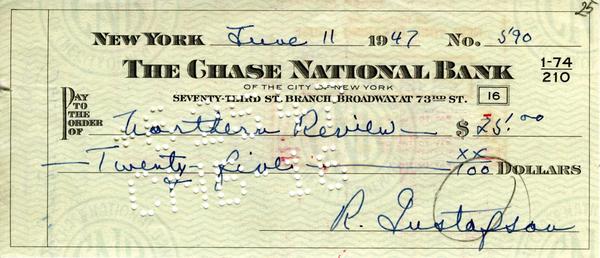 25
NEW YORK June 11 1947 No. 590
THE CHASE NATIONAL BANK 1-74/210
OF THE CITY OF NEW YORK
SEVENTY-THIRD ST. BRANCH, BROADWAY AT 73RD ST. 16
PAY TO THE ORDER OF Northern Review $ 25.00
Twenty five & xx/100 DOLLARS
R. Gustafson